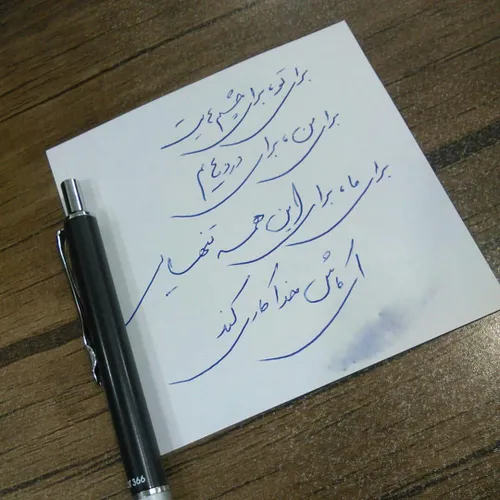 برای تو، برای چشم هایت
برای من، برای دردهایم
برای ما، برای این همه تنهایی
ای کاش خدا کاری کند
366